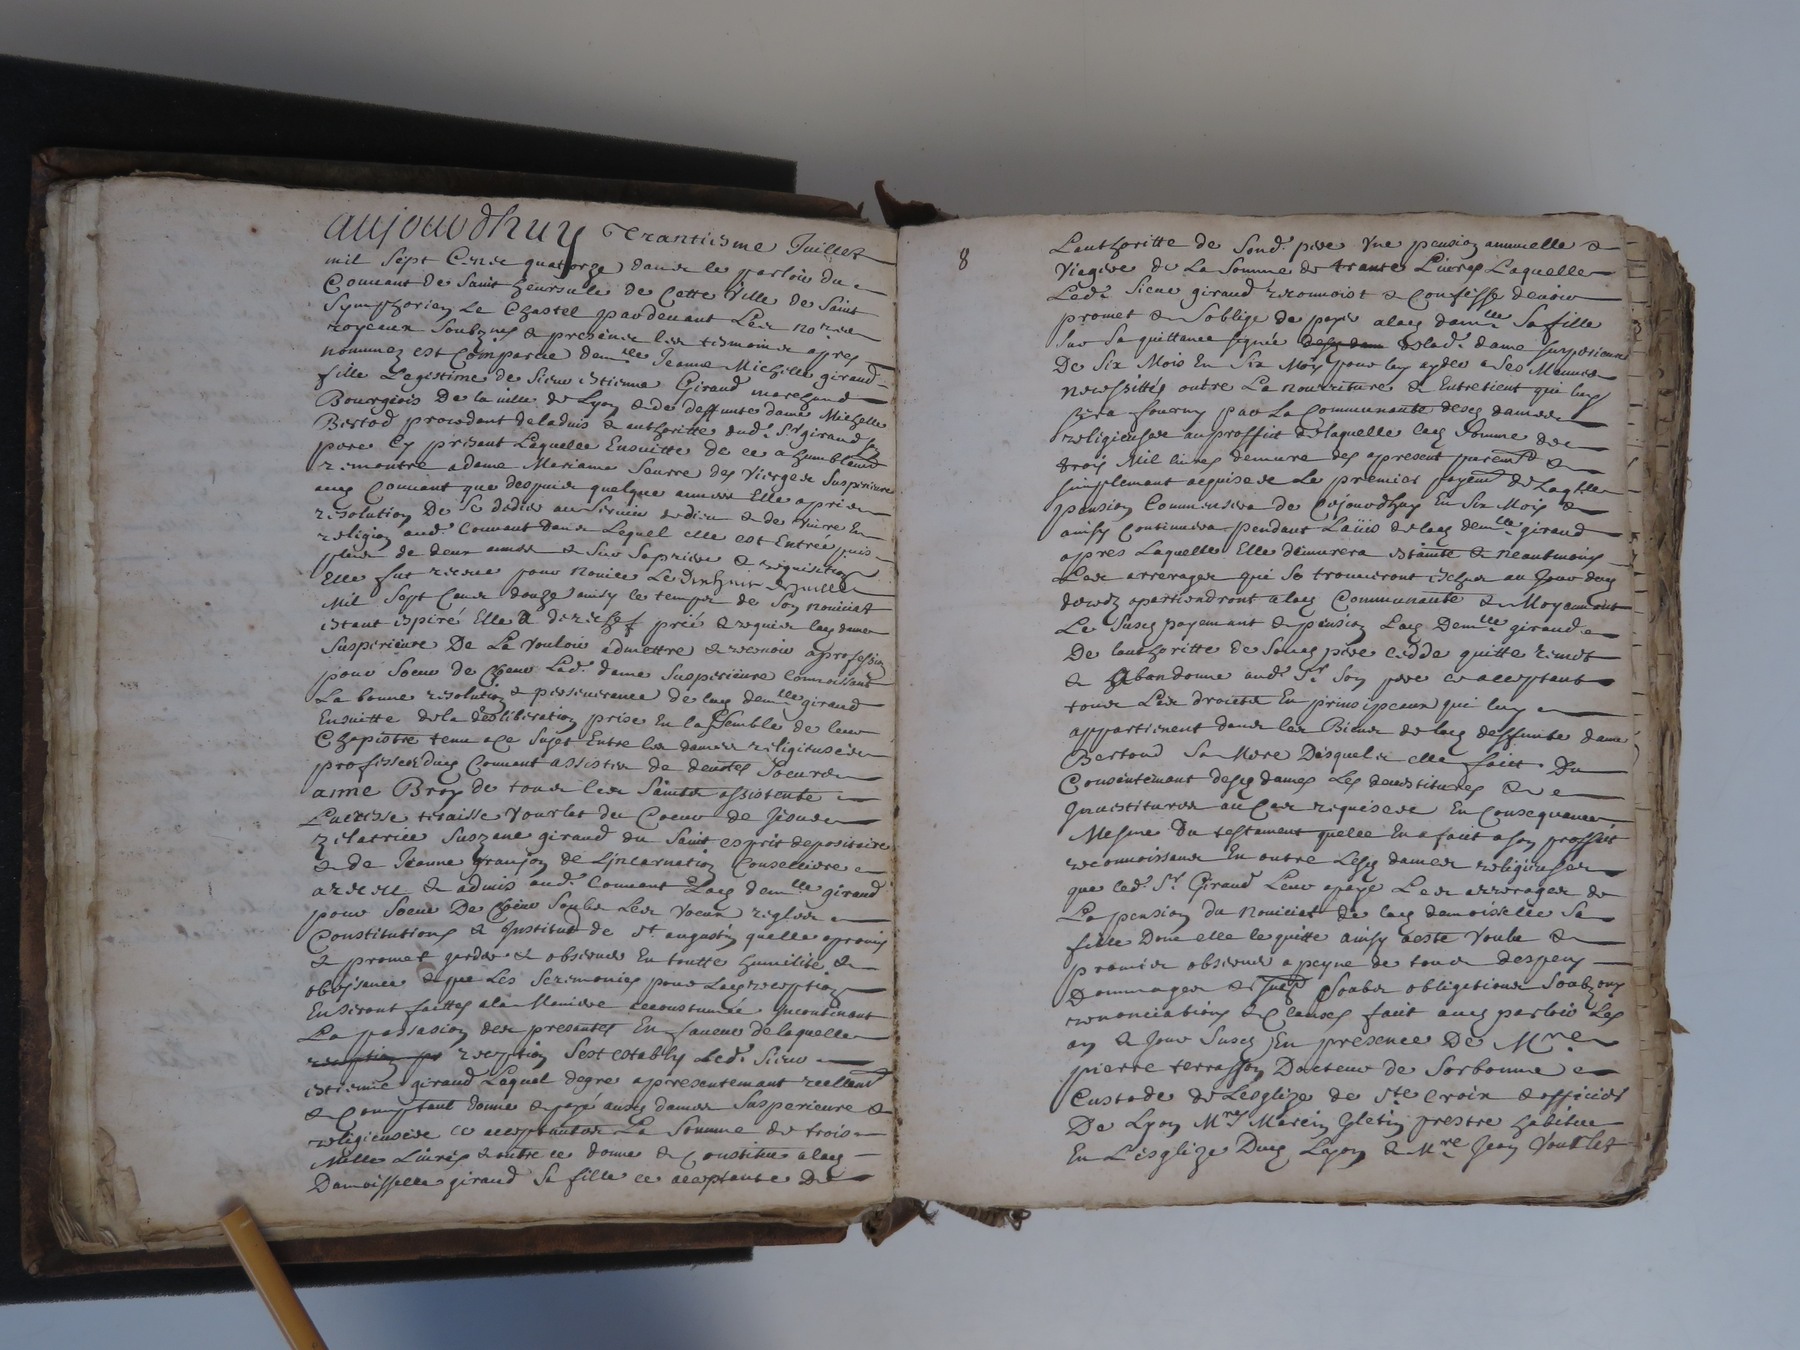 aujourdhuy Trantiesme Juillet
mil Sept Cens quatorze dans le parloir du
Couuant de Saint heursule de Cette Ville de Saint
Symphorien Le Chastel pardeuant Les no.res
royeaux Soubznes & presence des tesmoins apres
nommez est Comparue dem.lle Jeanne Michelle giraud
fille Legistime de Sieur estienne Giraud marchand
Bourgeois De la ville de Lyon & de deffunte dame Michelle
Bertod procedant de ladvis & authoritte dud. Sr giraud Son
pere Cy present Laquelle Ensuitte de ce a humblemt
remontre a dame Mariane Seurre des Vierges Susperieure
aud Couuant que despuis quelque annees Elle a pris
resolution De Se dedier au Seruice de dieu & de viure En
religion aud. Couuant dans Lequel elle est Entrée puis
plus de deux annes & Sur Sa priere & requisition
Elle fut receue pour nouice Le dixhuit Juillet
Mil Sept Cens douze ainsy le temps de Son nouiciat
estant expiré Elle a derechef prié & requis lad dame
Susperieure De La vouloir admettre & receuoir a profession
pour Soeur de Choeur Lad. dame Susperieure Connoissant
La bonne resolution & perseuerance de lad dem.lle giraud
Ensuitte de la deslibération prise En lassemblée de leur
Chapistre tenu a ce Sujet Entre les dames religieuses
professes dud Couuant assistée de deuotes Soeurs
anne Broy de tous les Saints assistente
Lucresse thaisse Vourlat du Coeur de Jesus
Zelatrice Suszane giraud du Saint esprit depositaire
& de Jeanne granjon de Lincarnation Conseillere
a receu & admis aud. Couuant Lad dem.lle giraud
pour Soeur De Choeur Soubs Les Voeux regles
Constitutions & Institut de St augustin quelle a promis
& promet garder & obseruer En toutte humilité &
obeissance & que Les Seremonies pour Lad reception
En Seront faittes a la Maniere accoustumée Incontinant
La passasion des presentes En faueur de laquelle
reception Sest estably Led. Sieur
estienne giraud Lequel de gre apresentemant reellemt
& Comptant donne & payé ausd dames Susperieure &
religieuses ce acceptantes La Somme de trois
Mille Liures & outre ce donne & Constitue a lad
Damoisselle giraud Sa fille ce acceptante De
8
Lauthoritte de Sond. pere Vne pension annuelle &
Viagere de La Somme de trante Liures Laquelle
Led. Sieur giraud reconnoist & Confesse deuoir
promet & Soblige de payer a lad dam.lle Sa fille
Sur Sa quittance signée de lad. dame susperieure
De Six Mois En Six Mois pour luy ayder a Ses Menues
necessittés outre La nourriture & Entretient qui luy
Sera fourny par La Communauté desd dames
religieuses au proffit de laquelle lad Somme de
trois Mil liures demure des apresent purement &
simplement acquise & Le premier payemt de Lad
pension Commensera de Cejourdhuy En Six Mois &
ainsy Continuera pendant La vie de lad dem.lle giraud
apres Laquelle Elle demurera estainte & neantmoins
Les arrerages qui Se trouueront escheus au Jour dud
decedz apartiendront a lad Communauté & Moyennant
Le Susd payemant & pension Lad Dem.lle giraud
De lauthoritte de Sond pere cedde quitte remet
& abandonne aud. Sr. Son pere ce acceptant
tous Les droits En principeaux qui luy
appartienent dans les Biens de lad deffunte dame
Bertod Sa Mere Desquels elle Sait Du
Consentemant desd dames Les deuestitures &
Inuestitures au Cas requises En Consequence
Mesme Du testament quelle En a fait a Son proffit
reconnoissans En outre Lesd dames religieuses
que led. Sr. Giraud Leur a payé Les arrerages de
La pension du nouiciat de lad damoisselle Sa
fille Dont elle le quitte ainsy
promis obseruer a peyne de tous despens
Dommages & Soubs obligations Soubzons
renonciations & Clauses fait aud parloir Les
an & Jour Susd En presence De Mre
pierre terrasson Docteur de Sorbonne
Custode de Lesglize de Ste Croix & officier
De Lyon Mre Marcin Gletin prestre habitué
En Lesglize Dud Layon & Mre Jean Voutlet